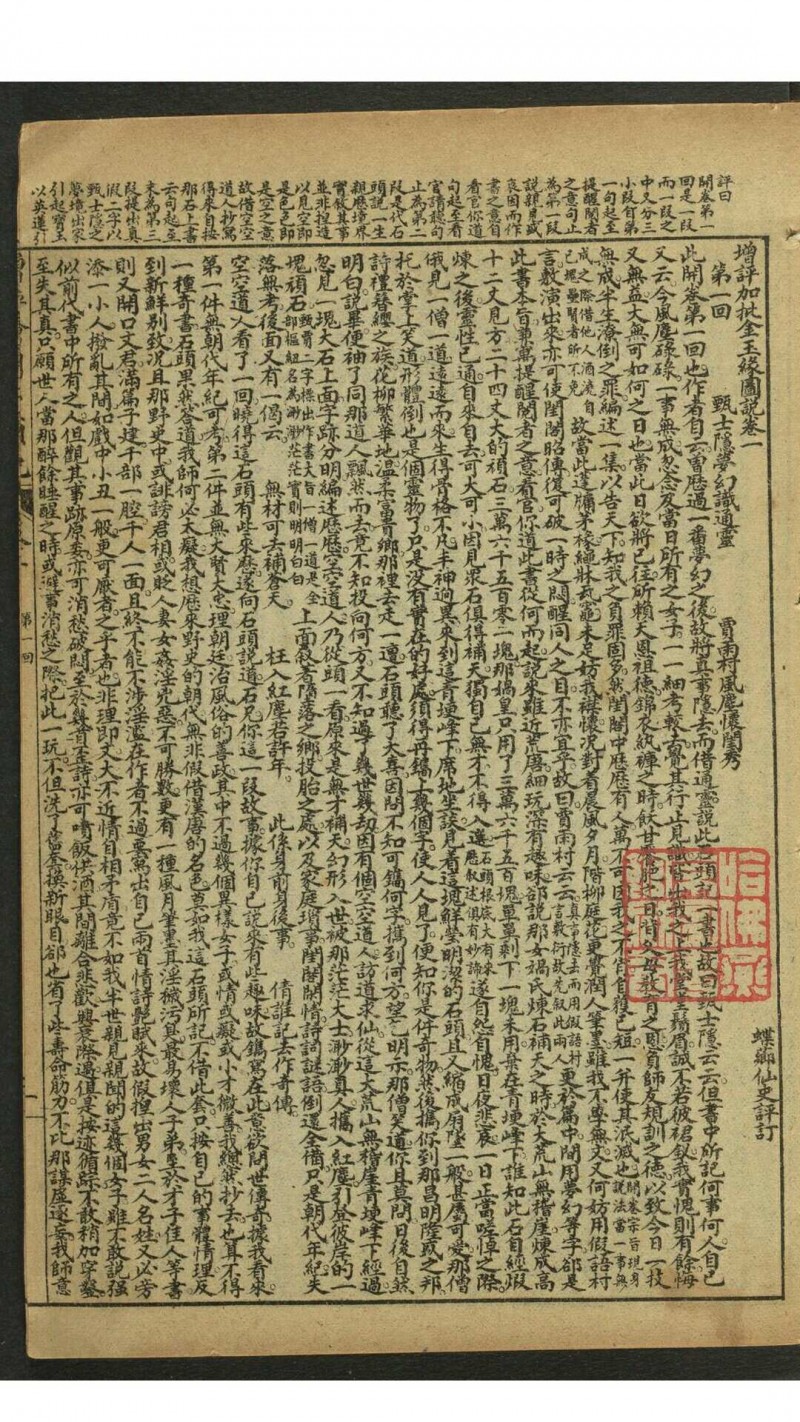 評曰
開卷第一
回是一段
而一段之
中又分三
小段自第
一句起至
提醒閱者
之意句止
為第一段
說親見盛
衰因而作
書之意自
看官你道
句起至看
官請聽句
止為第二
段是代石
頭說一生
親歷境界
實敘其事
並非捏造
以見空即
是色色即
是空之意
故借空空
道人抄寫
得來自按
那石上書
云句起至
末為第三
段提出真
假二字以
甄士隱之
夢境出家
引起寶玉
以英蓮引
增評加批金玉緣圖說卷一
第一回 甄士隱夢幻識通靈 賈雨村風塵懷閨秀
蝶薌仙史評訂
此開卷第一回也作者自云曾歷過一番夢幻之後故將真事隱去而借通靈說此石頭記一書也故曰甄士隱云云但書中所記何事何人自己
又云今風塵碌碌一事無成忽念及當日所有之女子一一細考較去覺其行止見識皆出我之上我堂堂鬚眉誠不若彼裙釵我實愧則有餘悔
又無益大無可如何之日也當此日欲將已往所賴天恩祖德錦衣紈褲之時飫甘饜肥之日背父母教育之恩負師友規訓之德以致今日一技
無成半生潦倒之罪編述一集以告天下知我之負罪固多然閨閣中歷歷有人萬不可因我之不肖自護己短一并使其泯滅也開卷宗旨現身說法當一事無
成之際借他人酒澆自己塊壘賢者所不免故當此蓬牖茅椽繩牀瓦竈未足妨我襟懷況對着晨風夕月階柳庭花更覺潤人筆墨雖我不學無文又何妨用假語村
言敷演出來亦可使閨閣昭傳復可破一時之悶醒同人之目不亦宜乎故曰賈雨村云云真事隱去而用假語村言敷衍故先敘此兩人更於篇中間用夢幻等字卻是
此書本旨兼寓提醒閱者之意看官你道此書從何而起說來雖近荒唐細玩深有趣味卻說那女媧氏煉石補天之時於大荒山無稽崖煉成高
十二丈見方二十四丈大的頑石三萬六千五百零一塊那媧皇只用了三萬六千五百塊單單剩下一塊未用棄在青埂峰下誰知此石自經煆
煉之後靈性已通自來自去可大可小因見衆石俱得補天獨自己無才不得入選石頭根底大有來歷敘述俱有妙諦遂自怨自愧日夜悲哀一日正當嗟悼之際
俄見一僧一道遠遠而來生得骨格不凡丰神迥異來到這青埂峰下席地坐談見着這塊鮮瑩明潔的石頭且又縮成扇墜一般甚屬可愛那僧
托於掌上笑道形體倒也是個靈物了只是沒有實在的好處須得再鐫上幾個字使人人見了便知你是件奇物然後攜你到那昌明隆盛之邦
詩禮簪纓之族花柳繁華地溫柔富貴鄉那裡去走一遭石頭聽了大喜因問不知可鐫何字攜到何方望乞明示那僧笑道你且莫問日後自然
明白說畢便袖了同那道人飄然而去竟不知投向何方又不知過了幾世幾劫因有個空空道人訪道求仙從這大荒山無稽崖青埂峰下經過
忽見一塊大石上面字跡分明編述歷歷空空道人乃從頭一看原來是無才補天幻形入世被那茫茫大士渺渺真人攜入紅塵引登彼岸的一
塊頑石甄賈二字標出作書大旨僧一道是全部樞紐名為渺渺茫茫實則明明白白上面敘着墮落之鄉投胎之處以及家庭瑣事閨閣閒情詩詞謎語倒還全備只是朝代年紀失
落無考後面又有一偈云
無材可去補蒼天 枉入紅塵若許年 此係身前身後事 倩誰記去作奇傳
空空道人看了一回曉得這石頭有些來歷遂向石頭說道石兄你這一段故事據你自己說來有些趣味故鐫寫在此意欲問世傳奇據我看來
第一件無朝代年紀可考第二件並無大賢大忠理朝廷治風俗的善政其中不過幾個異樣女子或情或癡或小才微善我縱然抄去也算不得
一種奇書石頭果然答道我師何必太癡我想歷來野史的朝代無非假借漢唐的名色莫如我這石頭所記不借此套只按自己的事體情理反
到新鮮別致況且那野史中或訕謗君相或貶人妻女姦淫兇惡不可勝數更有一種風月筆墨其淫穢污臭最易壞人子弟至於才子佳人等書
則又開口文君滿篇子建千部一腔千人一面且終不能不涉淫濫在作者不過要寫出自己兩首情詩艷賦來故假捏出男女二人名姓又必旁
添一小人撥亂其間如戲中小丑一般更可厭者之乎者也非理即文大不近情自相矛盾竟不如我半世親見親聞的這幾個女子雖不敢說強
似前代書中所有之人但觀其事跡原委亦可消愁破悶至於幾首歪詩亦可噴飯供酒其間離合悲歡興衰際遇俱是按迹循踪不敢稍加穿鑿
至失其真只願世人當那醉餘睡醒之時或避事消愁之際把此一玩不但洗了舊套換新眼目卻也省了些壽命筋力不比那謀虛逐妄我師意
第一回
一